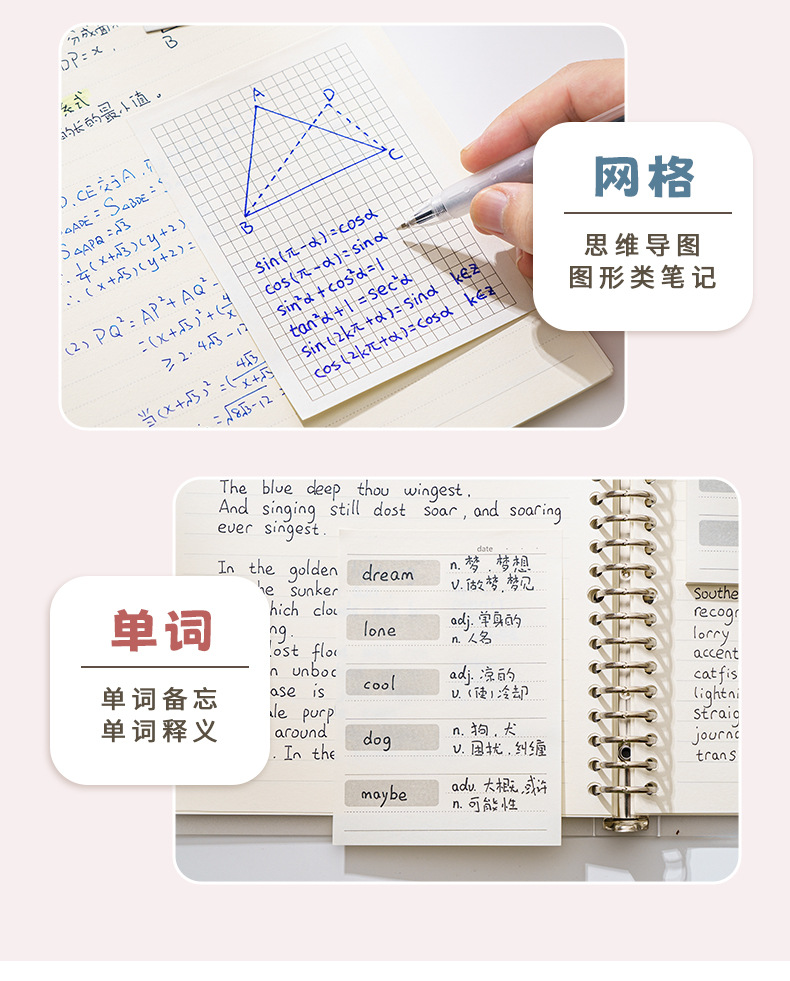 分成面
B
DP=x.
式
的长的最小值。
A
D
C
B
sin(π-α)=cosα
cos(π-α)=sinα
sin²α+cos²α=1
tan²α+1=sec²α
sin(2kπ+α)=sinα k∈Z
cos(2kπ+α)=cosα k∈Z
CE交于A.
S△ADE=S△BDE=
S△APQ=√3
1/4(x+√3)(y+2)
∴(x+√3)(y+2)=
(2) PQ²=AP²+AQ²-
=(x+√3)²+(
≥2·4√3-12
当(x+√3)²=(4√3/x+√3
=√8√3-12
网格
思维导图
图形类笔记
The blue deep thou wingest.
And singing still dost soar, and soaring
ever singest.
In the golden
he sunker
hich clou
ng.
lost floa
n unboc
ase is
ale purp
around
. In the
date
dream n. 梦，梦想
v. 做梦，梦见
lone adj. 单身的
n. 人名
cool adj. 凉的
v. (使)冷却
dog n. 狗，犬
v. 困扰，纠缠
maybe adv. 大概，或许
n. 可能性
Southe
recogn
lorry
accent
catfis
lightni
straig
journa
trans
单词
单词备忘
单词释义